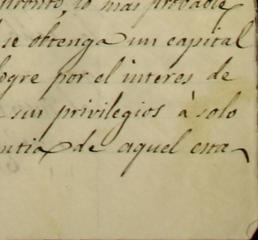 pronto, lo mas probable
se obtenga un capital
logre por el interes de
sin privilegios à solo
ntia de aquel esta